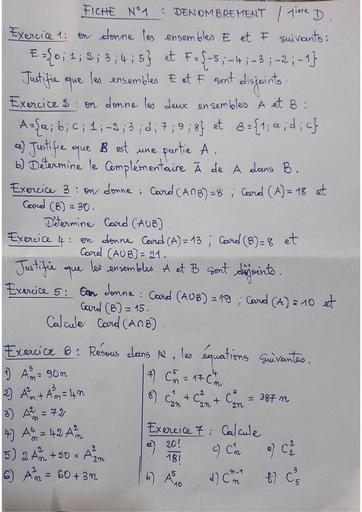 FICHE N°1 : DENOMBREMENT / 1iere D.
Exercice 1: on donne les ensembles E et F suivants:
E={0; 1; 2; 3; 4; 5} et F={-5; -4; -3; -2; -1}
Justifie que les ensembles E et F sont disjoints.
Exercice 2: on donne les deux ensembles A et B :
A={a; b; c; 1; -2; 3; d; 7; 9; 8} et B={1; a; d; c}
a) Justifie que B est une partie A.
b) Détermine le Complémentaire Ā de A dans B.
Exercice 3 : on donne : Card (A∩B)=8 ; Card (A)=18 et
Card (B) = 30.
Détermine Card (A∪B).
Exercice 4: on donne Card (A)=13 ; Card (B)=8 et
Card (A∪B) = 21.
Justifie que les ensembles A et B sont disjoints.
Exercice 5: On donne : Card (A∪B) = 19 ; Card (A) = 10 et
Card (B) = 15.
Calcule Card (A∩B).
Exercice 6: Résous dans N, les équations suivantes.
1) A³ₙ = 90n
2) A²ₙ + A³ₙ = 4n
3) A²ₙ = 72
4) A⁴ₙ = 42 A²ₙ
5) 2A²ₙ + 50 = A²₂ₙ
6) A²ₙ = 60 + 3n
7) C⁵ₙ = 17 C⁴ₙ
8) C¹₂ₙ + C²₂ₙ + C³₂ₙ = 387n
Exercice 7 : Calcule
a) 20!/18!
c) C¹ₙ
e) C²₂
b) A⁵₁₀
d) Cₙⁿ⁻¹
f) C³₅